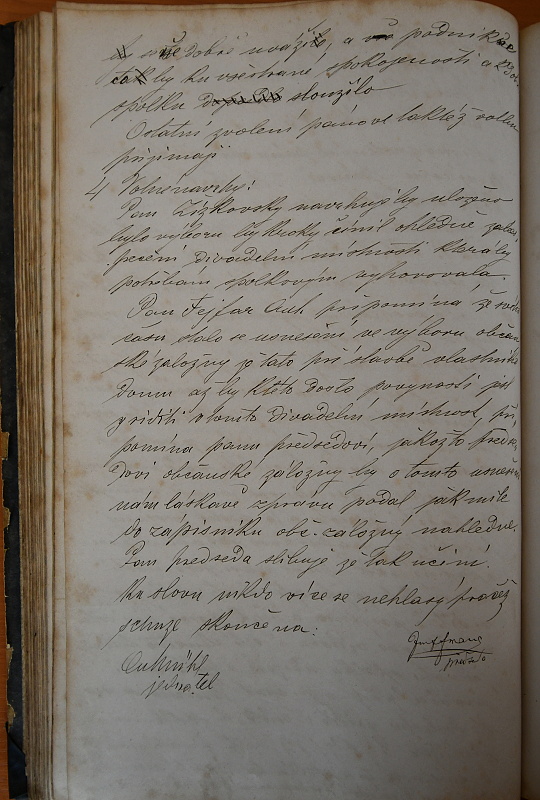 vše dobře uvážilo, a podnikalo
co by ku všestrané spokojenosti a zdar
spolku sloužilo
Ostatní zvolení pánové taktéž volbu
přijímají
4 Volné návrhy:
Pan Žižkovsky navrhuje by uloženo
bylo výboru by kroky činil ohledně zabez
pečení divadelní místnosti která by
potřebám spolkovým vyhovovala.
Pan Fejfar Ant. připomíná že svého
času stalo se usnesení ve výboru občan
ské záložny že tato při stavbě vlastního
domu až by k této došlo povinností jest
zříditi v tomto divadelní místnost, při
pomíná panu předsedovi, jakožto předse
dovi občanské záložny by o tomto usnesení
nám láskavě zprávu podal jak mile
do zápisníku obč. záložny nahledne.
Pan předseda slibuje že tak učiní.
Ku slovu nikdo více se nehlasý pročež
schuze skončena:
jednatel
předseda